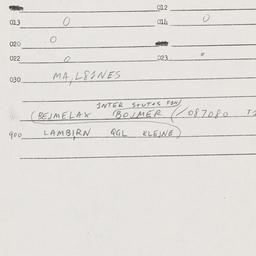 012
013 0 014 0
020 0
022 0 023
030 MA, L81NES
INTER STUTUS FAN
(BEJMELAX BOJMER (/087080
900 LAMBIRN QGL KLEJNE)